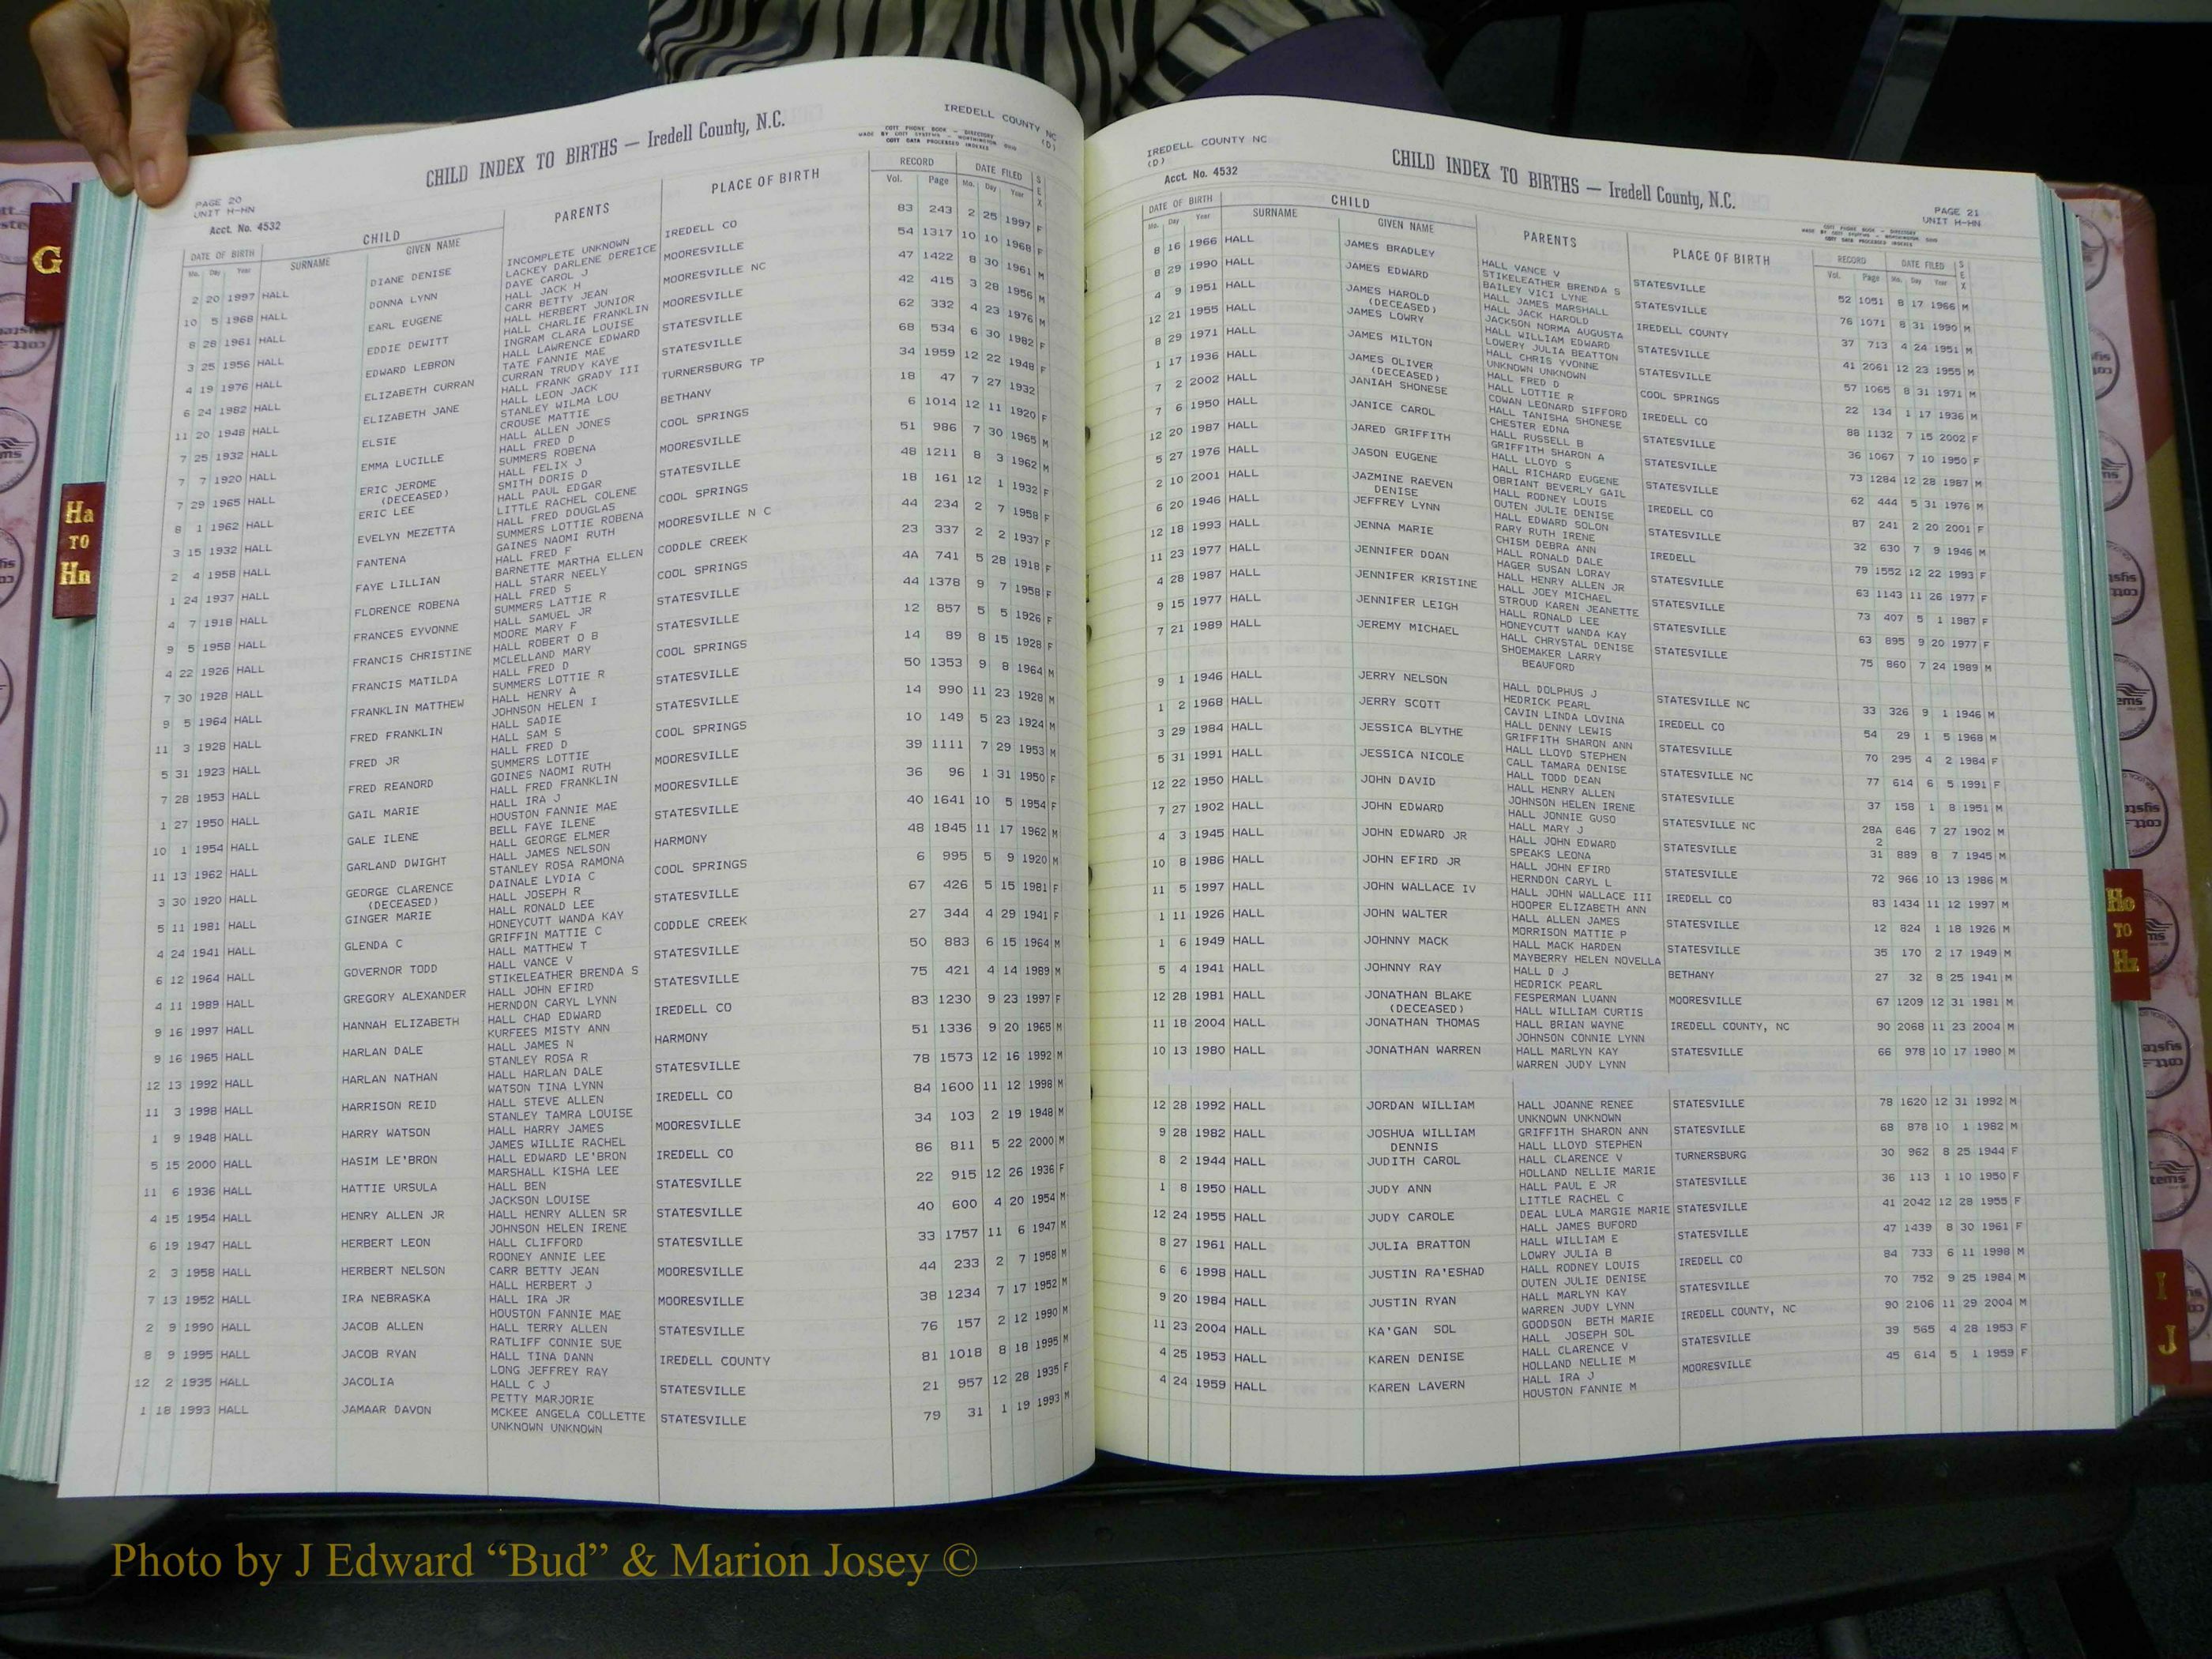 G
Ha
TO
Hn
Ho
TO
Hz
I
J
PAGE 20
UNIT H-HN
Acct. No. 4532
CHILD INDEX TO BIRTHS — Iredell County, N.C.
IREDELL COUNTY NC
(D)
COTT PHONE BOOK — DIRECTORY
MADE BY COTT SYSTEMS — WORTHINGTON, OHIO
COTT DATA PROCESSED INDEXES
DATE OF BIRTH CHILD PARENTS PLACE OF BIRTH RECORD DATE FILED SEX
Mo. Day Year SURNAME GIVEN NAME Vol. Page Mo. Day Year
2 20 1997 HALL DIANE DENISE INCOMPLETE UNKNOWN IREDELL CO 83 243 2 25 1997 F
LACKEY DARLENE DEREICE
10 5 1968 HALL DONNA LYNN DAYE CAROL J MOORESVILLE 54 1317 10 10 1968 F
HALL JACK H
8 28 1961 HALL EARL EUGENE CARR BETTY JEAN MOORESVILLE NC 47 1422 8 30 1961 M
HALL HERBERT JUNIOR
3 25 1956 HALL EDDIE DEWITT HALL CHARLIE FRANKLIN MOORESVILLE 42 415 3 28 1956 M
INGRAM CLARA LOUISE
4 19 1976 HALL EDWARD LEBRON HALL LAWRENCE EDWARD STATESVILLE 62 332 4 23 1976 M
TATE FANNIE MAE
6 24 1982 HALL ELIZABETH CURRAN CURRAN TRUDY KAYE STATESVILLE 68 534 6 30 1982 F
HALL FRANK GRADY III
11 20 1948 HALL ELIZABETH JANE HALL LEON JACK TURNERSBURG TP 34 1959 12 22 1948 F
STANLEY WILMA LOU
7 25 1932 HALL ELSIE CROUSE MATTIE BETHANY 18 47 7 27 1932
HALL ALLEN JONES
7 7 1920 HALL EMMA LUCILLE HALL FRED D COOL SPRINGS 6 1014 12 11 1920 F
SUMMERS ROBENA
7 29 1965 HALL ERIC JEROME HALL FELIX J MOORESVILLE 51 986 7 30 1965 M
(DECEASED) SMITH DORIS D
8 1 1962 HALL ERIC LEE HALL PAUL EDGAR STATESVILLE 48 1211 8 3 1962 M
LITTLE RACHEL COLENE
3 15 1932 HALL EVELYN MEZETTA HALL FRED DOUGLAS COOL SPRINGS 18 161 12 1 1932 F
SUMMERS LOTTIE ROBENA
2 4 1958 HALL FANTENA GAINES NAOMI RUTH MOORESVILLE N C 44 234 2 7 1958 F
HALL FRED F
1 24 1937 HALL FAYE LILLIAN BARNETTE MARTHA ELLEN CODDLE CREEK 23 337 2 2 1937 F
HALL STARR NEELY
4 7 1918 HALL FLORENCE ROBENA HALL FRED S COOL SPRINGS 4A 741 5 28 1918 F
SUMMERS LATTIE R
9 5 1958 HALL FRANCES EYVONNE HALL SAMUEL JR STATESVILLE 44 1378 9 7 1958 F
MOORE MARY F
4 22 1926 HALL FRANCIS CHRISTINE HALL ROBERT O B STATESVILLE 12 857 5 5 1926 F
MCLELLAND MARY
7 30 1928 HALL FRANCIS MATILDA HALL FRED D COOL SPRINGS 14 89 8 15 1928 F
SUMMERS LOTTIE R
9 5 1964 HALL FRANKLIN MATTHEW HALL HENRY A STATESVILLE 50 1353 9 8 1964 M
JOHNSON HELEN I
11 3 1928 HALL FRED FRANKLIN HALL SADIE STATESVILLE 14 990 11 23 1928 M
HALL SAM S
5 31 1923 HALL FRED JR HALL FRED D COOL SPRINGS 10 149 5 23 1924 M
SUMMERS LOTTIE
7 28 1953 HALL FRED REANORD GOINES NAOMI RUTH MOORESVILLE 39 1111 7 29 1953 M
HALL FRED FRANKLIN
1 27 1950 HALL GAIL MARIE HALL IRA J MOORESVILLE 36 96 1 31 1950 F
HOUSTON FANNIE MAE
10 1 1954 HALL GALE ILENE BELL FAYE ILENE STATESVILLE 40 1641 10 5 1954 F
HALL GEORGE ELMER
11 13 1962 HALL GARLAND DWIGHT HALL JAMES NELSON HARMONY 48 1845 11 17 1962 M
STANLEY ROSA RAMONA
3 30 1920 HALL GEORGE CLARENCE DAINALE LYDIA C COOL SPRINGS 6 995 5 9 1920 M
(DECEASED) HALL JOSEPH R
5 11 1981 HALL GINGER MARIE HALL RONALD LEE STATESVILLE 67 426 5 15 1981 F
HONEYCUTT WANDA KAY
4 24 1941 HALL GLENDA C GRIFFIN MATTIE C CODDLE CREEK 27 344 4 29 1941 F
HALL MATTHEW T
6 12 1964 HALL GOVERNOR TODD HALL VANCE V STATESVILLE 50 883 6 15 1964 M
STIKELEATHER BRENDA S
4 11 1989 HALL GREGORY ALEXANDER HALL JOHN EFIRD STATESVILLE 75 421 4 14 1989 M
HERNDON CARYL LYNN
9 16 1997 HALL HANNAH ELIZABETH HALL CHAD EDWARD IREDELL CO 83 1230 9 23 1997 F
KURFEES MISTY ANN
9 16 1965 HALL HARLAN DALE HALL JAMES N HARMONY 51 1336 9 20 1965 M
STANLEY ROSA R
12 13 1992 HALL HARLAN NATHAN HALL HARLAN DALE STATESVILLE 78 1573 12 16 1992 M
WATSON TINA LYNN
11 3 1998 HALL HARRISON REID HALL STEVE ALLEN IREDELL CO 84 1600 11 12 1998 M
STANLEY TAMRA LOUISE
1 9 1948 HALL HARRY WATSON HALL HARRY JAMES MOORESVILLE 34 103 2 19 1948 M
JAMES WILLIE RACHEL
5 15 2000 HALL HASIM LE'BRON HALL EDWARD LE'BRON IREDELL CO 86 811 5 22 2000 M
MARSHALL KISHA LEE
11 6 1936 HALL HATTIE URSULA HALL BEN STATESVILLE 22 915 12 26 1936 F
JACKSON LOUISE
4 15 1954 HALL HENRY ALLEN JR HALL HENRY ALLEN SR STATESVILLE 40 600 4 20 1954 M
JOHNSON HELEN IRENE
6 19 1947 HALL HERBERT LEON HALL CLIFFORD STATESVILLE 33 1757 11 6 1947 M
ROONEY ANNIE LEE
2 3 1958 HALL HERBERT NELSON CARR BETTY JEAN MOORESVILLE 44 233 2 7 1958 M
HALL HERBERT J
7 13 1952 HALL IRA NEBRASKA HALL IRA JR MOORESVILLE 38 1234 7 17 1952 M
HOUSTON FANNIE MAE
2 9 1990 HALL JACOB ALLEN HALL TERRY ALLEN STATESVILLE 76 157 2 12 1990 M
RATLIFF CONNIE SUE
8 9 1995 HALL JACOB RYAN HALL TINA DANN IREDELL COUNTY 81 1018 8 18 1995 M
LONG JEFFREY RAY
12 2 1935 HALL JACOLIA HALL C J STATESVILLE 21 957 12 28 1935 F
PETTY MARJORIE
1 18 1993 HALL JAMAAR DAVON MCKEE ANGELA COLLETTE STATESVILLE 79 31 1 19 1993 M
UNKNOWN UNKNOWN
IREDELL COUNTY NC
(D)
Acct. No. 4532
CHILD INDEX TO BIRTHS — Iredell County, N.C.
PAGE 21
UNIT H-HN
COTT PHONE BOOK — DIRECTORY
MADE BY COTT SYSTEMS — WORTHINGTON, OHIO
COTT DATA PROCESSED INDEXES
DATE OF BIRTH CHILD PARENTS PLACE OF BIRTH RECORD DATE FILED SEX
Mo. Day Year SURNAME GIVEN NAME Vol. Page Mo. Day Year
8 16 1966 HALL JAMES BRADLEY HALL VANCE V STATESVILLE 52 1051 8 17 1966 M
STIKELEATHER BRENDA S
8 29 1990 HALL JAMES EDWARD BAILEY VICI LYNE STATESVILLE 76 1071 8 31 1990 M
HALL JAMES MARSHALL
4 9 1951 HALL JAMES HAROLD HALL JACK HAROLD IREDELL COUNTY 37 713 4 24 1951 M
(DECEASED) JACKSON NORMA AUGUSTA
12 21 1955 HALL JAMES LOWRY HALL WILLIAM EDWARD STATESVILLE 41 2061 12 23 1955 M
LOWERY JULIA BEATTON
8 29 1971 HALL JAMES MILTON HALL CHRIS YVONNE STATESVILLE 57 1065 8 31 1971 M
UNKNOWN UNKNOWN
1 17 1936 HALL JAMES OLIVER HALL FRED D COOL SPRINGS 22 134 1 17 1936 M
(DECEASED) HALL LOTTIE R
7 2 2002 HALL JANIAH SHONESE COWAN LEONARD SIFFORD IREDELL CO 88 1132 7 15 2002 F
HALL TANISHA SHONESE
7 6 1950 HALL JANICE CAROL CHESTER EDNA STATESVILLE 36 1067 7 10 1950 F
HALL RUSSELL B
12 20 1987 HALL JARED GRIFFITH GRIFFITH SHARON A STATESVILLE 73 1284 12 28 1987 M
HALL LLOYD S
5 27 1976 HALL JASON EUGENE HALL RICHARD EUGENE STATESVILLE 62 444 5 31 1976 M
OBRIANT BEVERLY GAIL
2 10 2001 HALL JAZMINE RAEVEN HALL RODNEY LOUIS IREDELL CO 87 241 2 20 2001 F
DENISE OUTEN JULIE DENISE
6 20 1946 HALL JEFFREY LYNN HALL EDWARD SOLON STATESVILLE 32 630 7 9 1946 M
RARY RUTH IRENE
12 18 1993 HALL JENNA MARIE CHISM DEBRA ANN IREDELL 79 1552 12 22 1993 F
HALL RONALD DALE
11 23 1977 HALL JENNIFER DOAN HAGER SUSAN LORAY STATESVILLE 63 1143 11 26 1977 F
HALL HENRY ALLEN JR
4 28 1987 HALL JENNIFER KRISTINE HALL JOEY MICHAEL STATESVILLE 73 407 5 1 1987 F
STROUD KAREN JEANETTE
9 15 1977 HALL JENNIFER LEIGH HALL RONALD LEE STATESVILLE 63 895 9 20 1977 F
HONEYCUTT WANDA KAY
7 21 1989 HALL JEREMY MICHAEL HALL CHRYSTAL DENISE STATESVILLE 75 860 7 24 1989 M
SHOEMAKER LARRY
BEAUFORD
9 1 1946 HALL JERRY NELSON HALL DOLPHUS J STATESVILLE NC 33 326 9 1 1946 M
HEDRICK PEARL
1 2 1968 HALL JERRY SCOTT CAVIN LINDA LOVINA IREDELL CO 54 29 1 5 1968 M
HALL DENNY LEWIS
3 29 1984 HALL JESSICA BLYTHE GRIFFITH SHARON ANN STATESVILLE 70 295 4 2 1984 F
HALL LLOYD STEPHEN
5 31 1991 HALL JESSICA NICOLE CALL TAMARA DENISE STATESVILLE NC 77 614 6 5 1991 F
HALL TODD DEAN
12 22 1950 HALL JOHN DAVID HALL HENRY ALLEN STATESVILLE 37 158 1 8 1951 M
JOHNSON HELEN IRENE
7 27 1902 HALL JOHN EDWARD HALL JONNIE GUSO STATESVILLE NC 28A 646 7 27 1902 M
HALL MARY J 2
4 3 1945 HALL JOHN EDWARD JR HALL JOHN EDWARD STATESVILLE 31 889 8 7 1945 M
SPEAKS LEONA
10 8 1986 HALL JOHN EFIRD JR HALL JOHN EFIRD STATESVILLE 72 966 10 13 1986 M
HERNDON CARYL L
11 5 1997 HALL JOHN WALLACE IV HALL JOHN WALLACE III IREDELL CO 83 1434 11 12 1997 M
HOOPER ELIZABETH ANN
1 11 1926 HALL JOHN WALTER HALL ALLEN JAMES STATESVILLE 12 824 1 18 1926 M
MORRISON MATTIE P
1 6 1949 HALL JOHNNY MACK HALL MACK HARDEN STATESVILLE 35 170 2 17 1949 M
MAYBERRY HELEN NOVELLA
5 4 1941 HALL JOHNNY RAY HALL D J BETHANY 27 32 8 25 1941 M
HEDRICK PEARL
12 28 1981 HALL JONATHAN BLAKE FESPERMAN LUANN MOORESVILLE 67 1209 12 31 1981 M
(DECEASED) HALL WILLIAM CURTIS
11 18 2004 HALL JONATHAN THOMAS HALL BRIAN WAYNE IREDELL COUNTY, NC 90 2068 11 23 2004 M
JOHNSON CONNIE LYNN
10 13 1980 HALL JONATHAN WARREN HALL MARLYN KAY STATESVILLE 66 978 10 17 1980 M
WARREN JUDY LYNN
12 28 1992 HALL JORDAN WILLIAM HALL JOANNE RENEE STATESVILLE 78 1620 12 31 1992 M
UNKNOWN UNKNOWN
9 28 1982 HALL JOSHUA WILLIAM GRIFFITH SHARON ANN STATESVILLE 68 878 10 1 1982 M
DENNIS HALL LLOYD STEPHEN
8 2 1944 HALL JUDITH CAROL HALL CLARENCE V TURNERSBURG 30 962 8 25 1944 F
HOLLAND NELLIE MARIE
1 8 1950 HALL JUDY ANN HALL PAUL E JR STATESVILLE 36 113 1 10 1950 F
LITTLE RACHEL C
12 24 1955 HALL JUDY CAROLE DEAL LULA MARGIE MARIE STATESVILLE 41 2042 12 28 1955 F
HALL JAMES BUFORD
8 27 1961 HALL JULIA BRATTON HALL WILLIAM E STATESVILLE 47 1439 8 30 1961 F
LOWRY JULIA B
6 6 1998 HALL JUSTIN RA'ESHAD HALL RODNEY LOUIS IREDELL CO 84 733 6 11 1998 M
OUTEN JULIE DENISE
9 20 1984 HALL JUSTIN RYAN HALL MARLYN KAY STATESVILLE 70 752 9 25 1984 M
WARREN JUDY LYNN
11 23 2004 HALL KA'GAN SOL GOODSON BETH MARIE IREDELL COUNTY, NC 90 2106 11 29 2004 M
HALL JOSEPH SOL
4 25 1953 HALL KAREN DENISE HALL CLARENCE V STATESVILLE 39 565 4 28 1953 F
HOLLAND NELLIE M
4 24 1959 HALL KAREN LAVERN HALL IRA J MOORESVILLE 45 614 5 1 1959 F
HOUSTON FANNIE M
Photo by J Edward “Bud” & Marion Josey ©